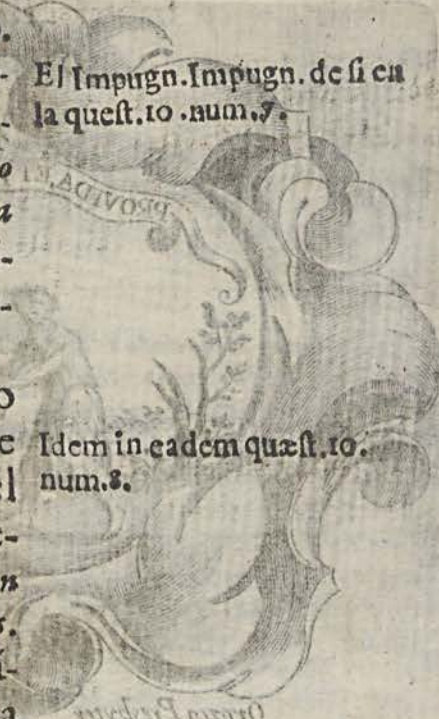 El Impugn.Impugn. de si en
la quest.10.num.7.
PROVIDA ET
Idem in eadem quæst.10.
num.8.